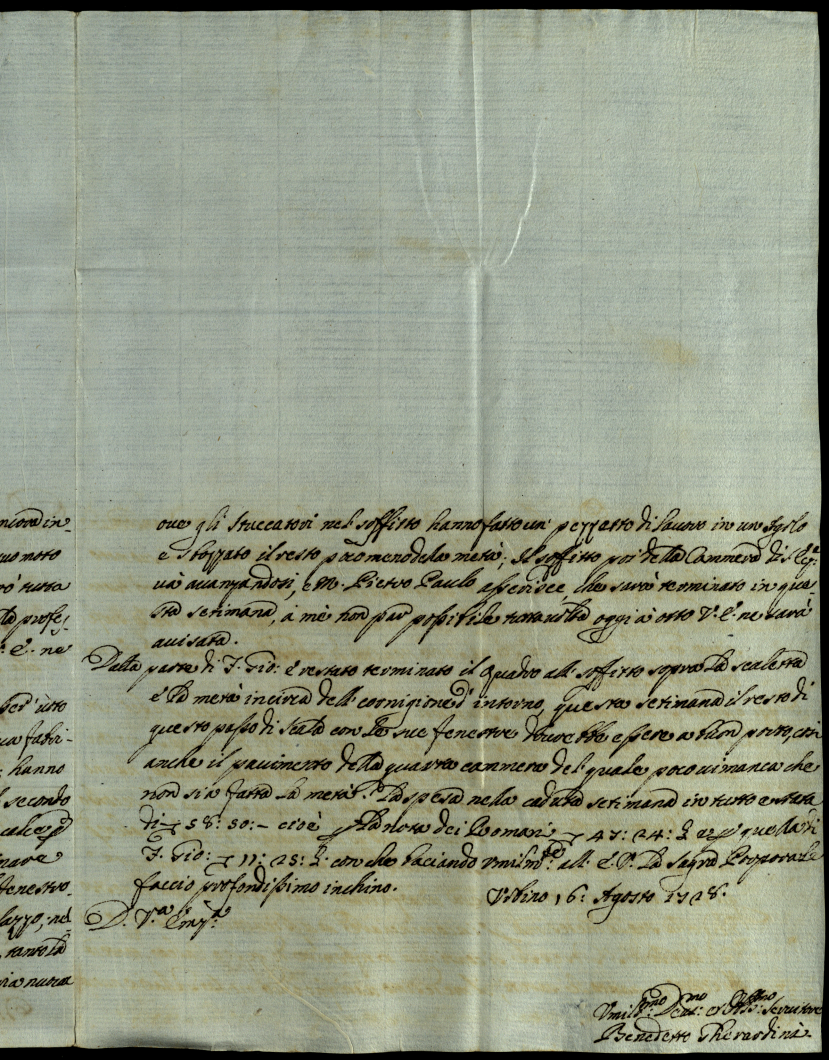 ncora in-
uo moto
rò tutta
la profe-
: E: ne
per uso
ua fabri-
: hanno
l secondo
calce p
inare
fenestro-
lazzo, nel
tanto la
ia nuova
oue gli stuccatori nel soffitto hanno fatto un pezzetto di lauoro in un
e sbozzato il resto poco meno de la metà; Il soffitto poi della Cammera di
ua auanzandosi, e M. Pietro Paulo asserisce, che sarà terminato in que-
sta setimana, à mè non par possibile tutta uolta oggi à otto V: E: ne sarà
auisata.
Dalla parte di S. Gio: è restato terminato il quadro all soffitto sopra la scaletta
e la metà incirca dell cornigione d'intorno, questa setimana il resto di
questo passo di scala con le sue fenestre dourebbe essere a buon porto, così
anche il pauimento della quarta cammera del quale poco ui manca che
non sia fatta la metà. La spesa nella caduta setimana in tutto è stata
di 58: 50:- cioè p la nota dei Romani 47: 24: e p quella di
S. Gio: 11: 25: con che baciando vmilmte: all: E:V: la Sagra Porpora le
faccio profondissimo inchino. Vrbino 16: Agosto 1728.
D. Va: Emza:
Vmilmo: Deuo: et Obbmo: Seruitore
Benedetto Gherardini